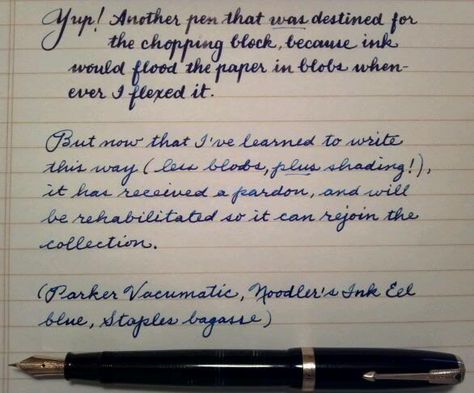 Yup! Another pen that was destined for
the chopping block, because ink
would flood the paper in blobs when-
ever I flexed it.
But now that I've learned to write
this way (less blobs, plus shading!),
it has received a pardon, and will
be rehabilitated so it can rejoin the
collection.
(Parker Vacumatic, Noodler's Ink Eel
blue, Staples bagasse)